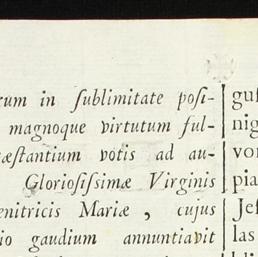 rum in ſublimitate poſi-
magnoque virtutum ful-
æſtantium votis ad au-
Glorioſiſſimæ Virginis
enitricis Mariæ, cujus
io gaudium annuntiavit
guſ
nig
vor
pia
Jeſ
las